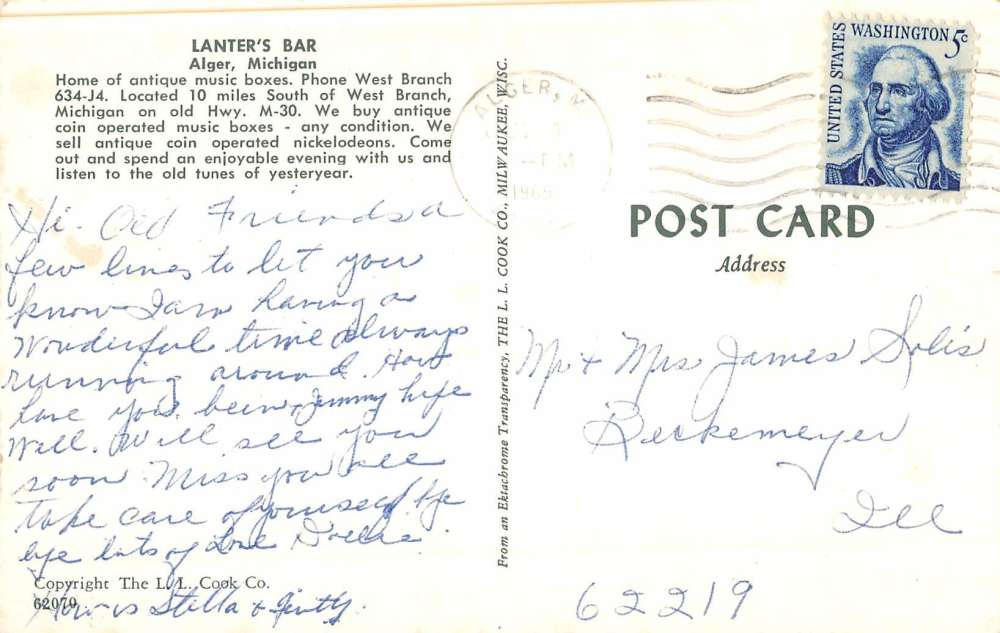 LANTER'S BAR
Alger, Michigan
Home of antique music boxes. Phone West Branch
634-J4. Located 10 miles South of West Branch,
Michigan on old Hwy. M-30. We buy antique
coin operated music boxes - any condition. We
sell antique coin operated nickelodeons. Come
out and spend an enjoyable evening with us and
listen to the old tunes of yesteryear.
Hi. Old Friends a
few lines to let you
know I am having a
Wonderful time always
running around. How
have you been, Jimmy hope
Well. Will see you
soon. Miss you all
take care of yourself bye
bye lots of Love Dollie.
Copyright The L. L. Cook Co.
62079
How is Stella &
From an Ektachrome Transparency, THE L. L. COOK CO., MILWAUKEE, WISC.
ALGER, M
PM
1969
UNITED STATES
WASHINGTON 5c
POST CARD
Address
Mr + Mrs James Solis
Beckemeyer
Ill
62219